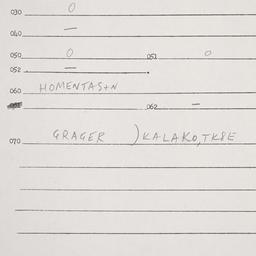 030 0
040 —
050 0 051 0
052 —
060 HOMENTAS+N
062 —
070 GRAGER ) KALAKO, TK8E